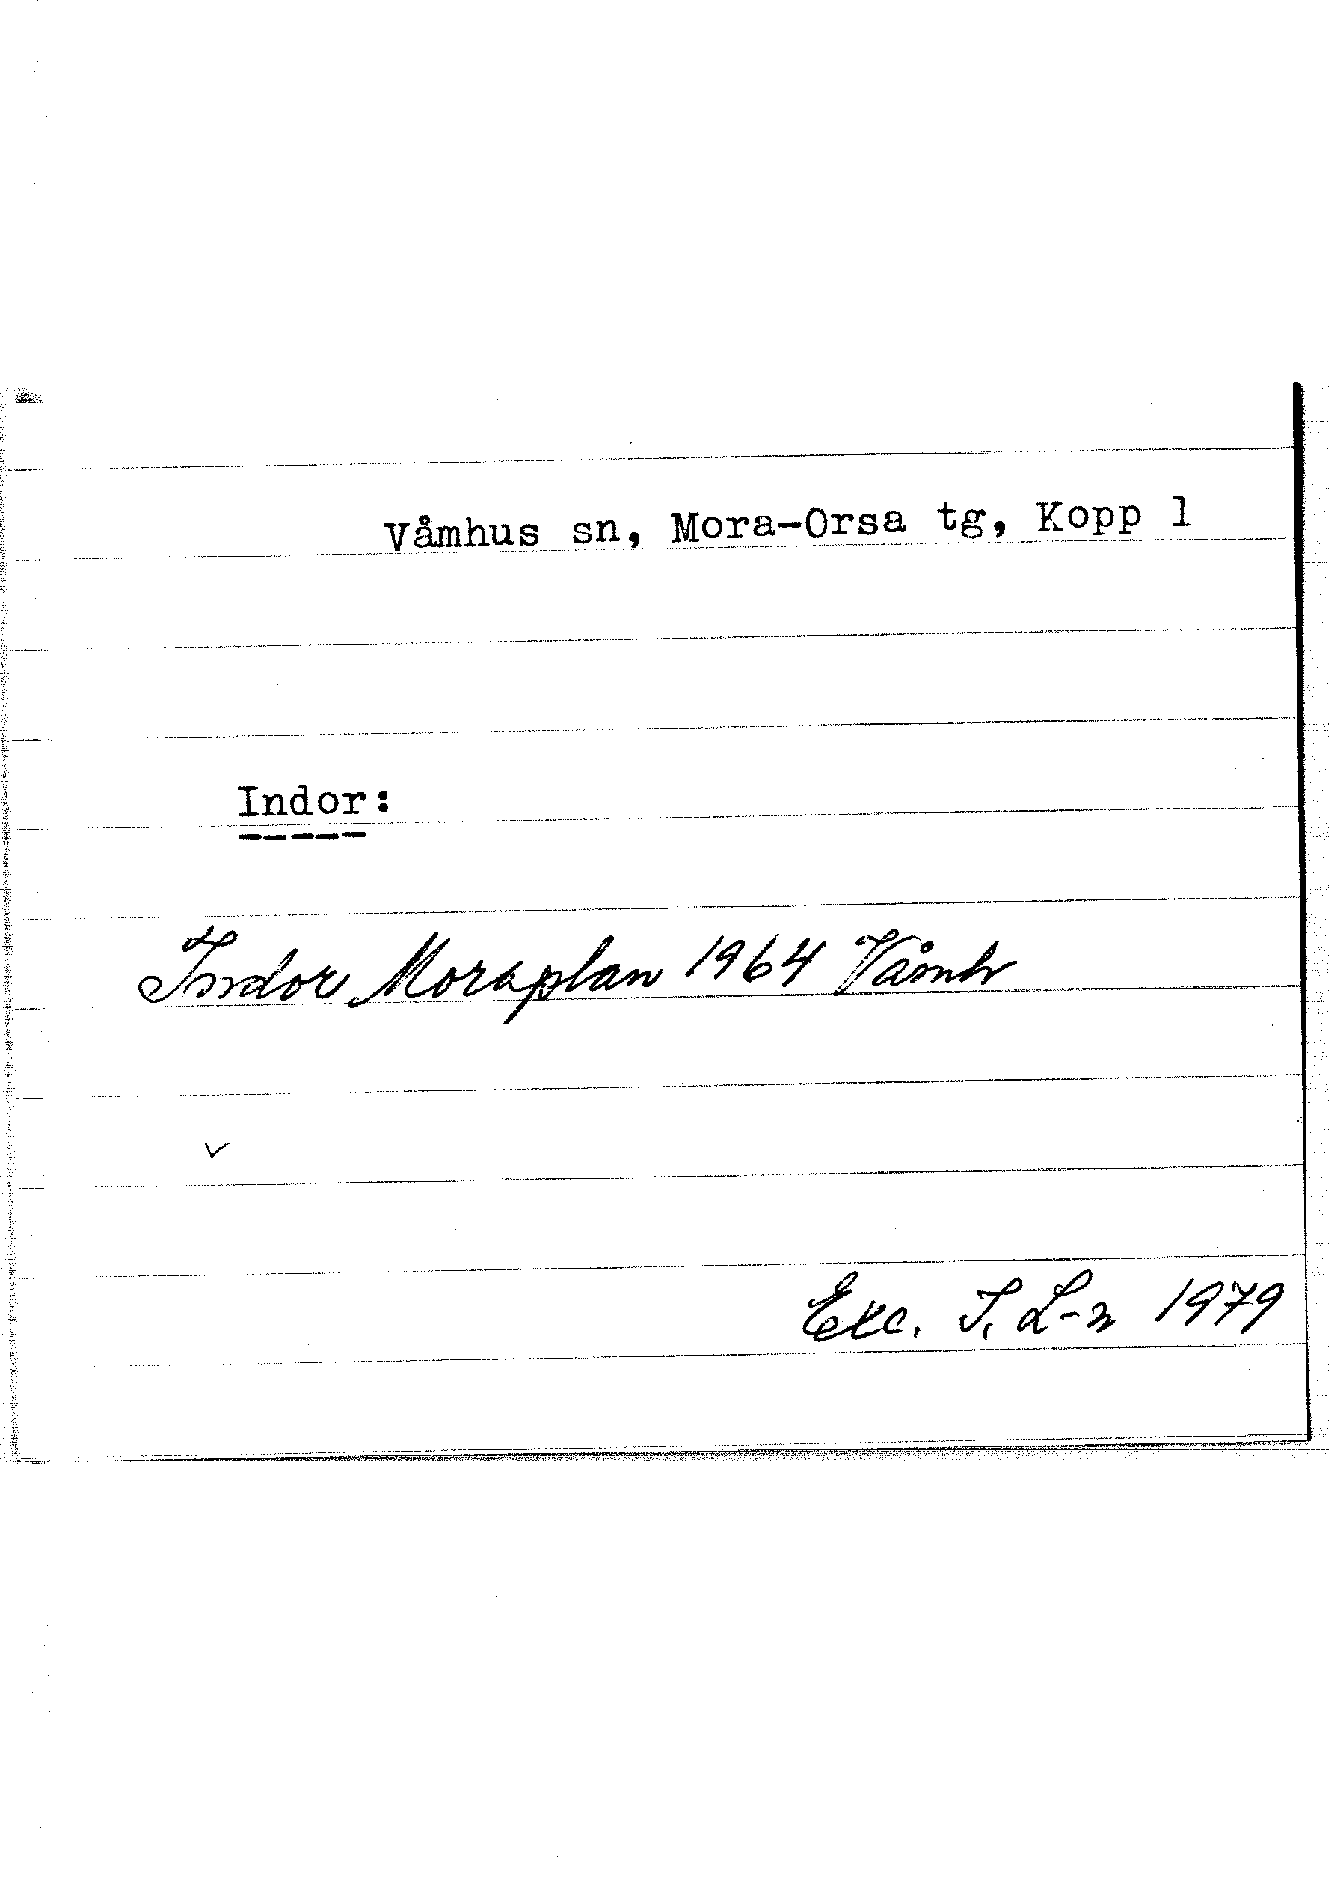 Våmhus sn, Mora-Orsa tg, Kopp l
Indor:
Indor Moraplan 1964 Våmh
Exc. I. L-n 1979